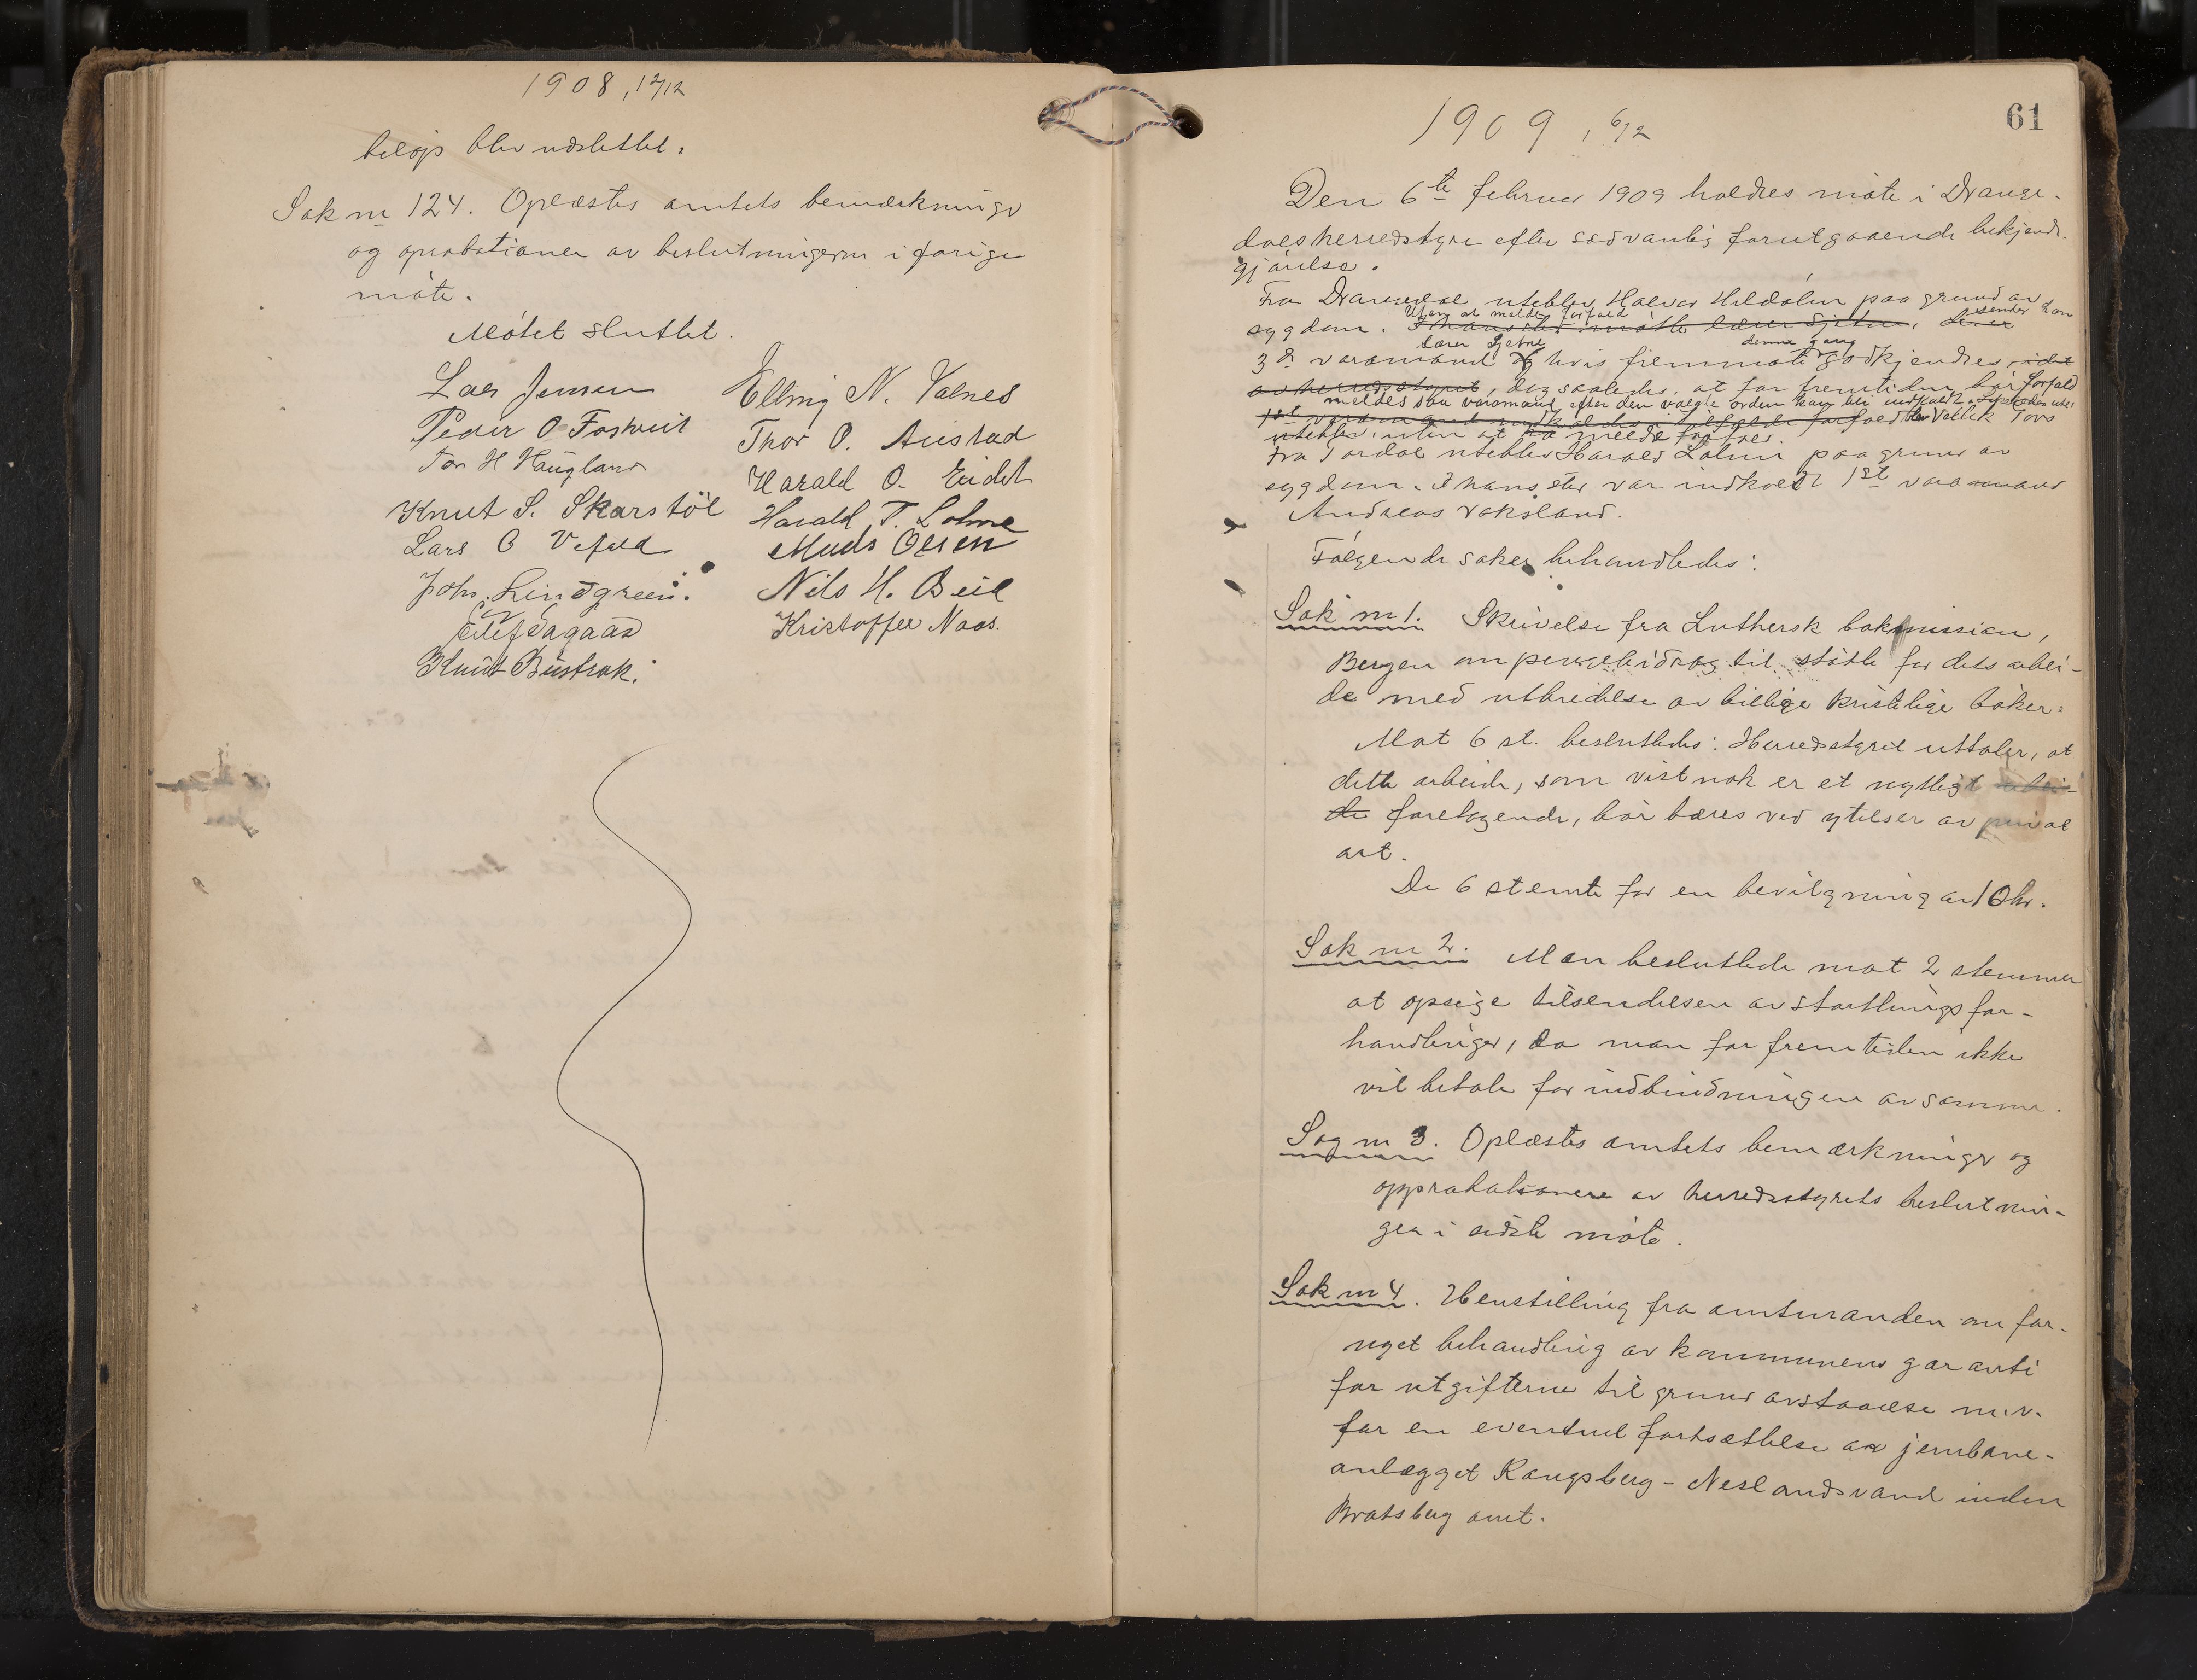 1908, 12/12
beløp blev utslettet.
Sak nr 124. Oplæstes amtets bemærkninger
og aprobationer av beslutningerne i forige
møte.
Møtet sluttet.
Lars Jensen
Peder O. Fostveit
Tor H Haugland
Knut S. Skarstøl
Lars O Vefald
Johs. Lindgreen.
Eilef Dagaas
Knut Bustrak.
Elling N. Valnes
Thor O. Austad
Harald O. Eidet
Harald T. Lohne
Mads Olsen
Nils H. Beil
Kristoffer Naas.
61
1909, 6/2
Den 6te februar 1909 holdtes møte i Drange-
dals herredstyre efter sædvanlig forutgaaende bekjendt-
gjørelse.
Fra Drangedal uteblev Halvor Heldalen paa grund av
sygdom. Uten at melde forfald sender han
I hans sted møtte lærer Sjetne, der er
lærer Sjetne denne gang
3die varamand hvis fremmøte godkjendtes, idet
av herredstyret, dog saaledes, at for fremtiden bør forfald
meldes saa varamand efter den valgte orden kan bli indkaldt.
1ste varamand indkaldes i tilfælde forfald Vellik Tovs
uteblev uten at ha meldt forfald.
Fra Tørdal uteblev Harald Lohne paa grund av
sygdom. I hans sted var indkaldt 1st varamand
Andreas Vaksland.
Følgende saker behandledes:
Sak nr 1. Skrivelse fra Luthersk bokmission,
Bergen om pengebidrag til støtte for dets arbei-
de med utbredelse av billige kristelige bøker.
Mot 6 st. besluttedes: Herredstyret uttaler, at
dette arbeide, som vistnok er et nyttigt arbei-
de foretagende, bør bæres ved ytelser av privat
art.
De 6 stemte for en bevilgning av 10 kr.
Sak nr 2. Man besluttede mot 2 stemmer
at opsige tilsendelsen av stortingsfor-
handlinger, da man for fremtiden ikke
vil betale for indbindningen av samme.
Sag nr 3. Oplæstes amtets bemærkninger og
approbationer av herredsstyrets beslutnin-
ger i sidste møte.
Sak nr 4. Henstilling fra amtmanden om for-
nyet behandling av kommunens garanti
for utgifterne til grundavstaaelse m.v.
for en eventuel fortsættelse av jernbane-
anlægget Kongsberg - Neslandsvand inden
Bratsberg amt.